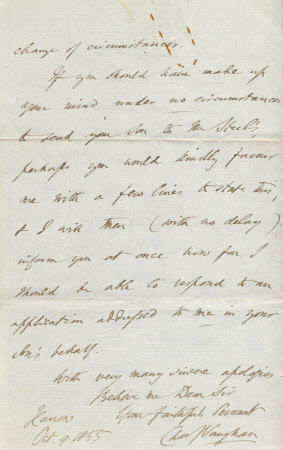 change of circumstances.
If you should have made up
your mind under no circumstances
to send your Son to Mr Steel's
perhaps you would kindly favour
me with a few lines to state this,
& I will then (with no delay)
inform you at once how far I
should be able to respond to an
application addressed to me in your
son's behalf.
With very many sincere apologies
Believe me Dear Sir
Your faithful Servant
Harrow
Chas J Vaughan
Oct. 9. 1855